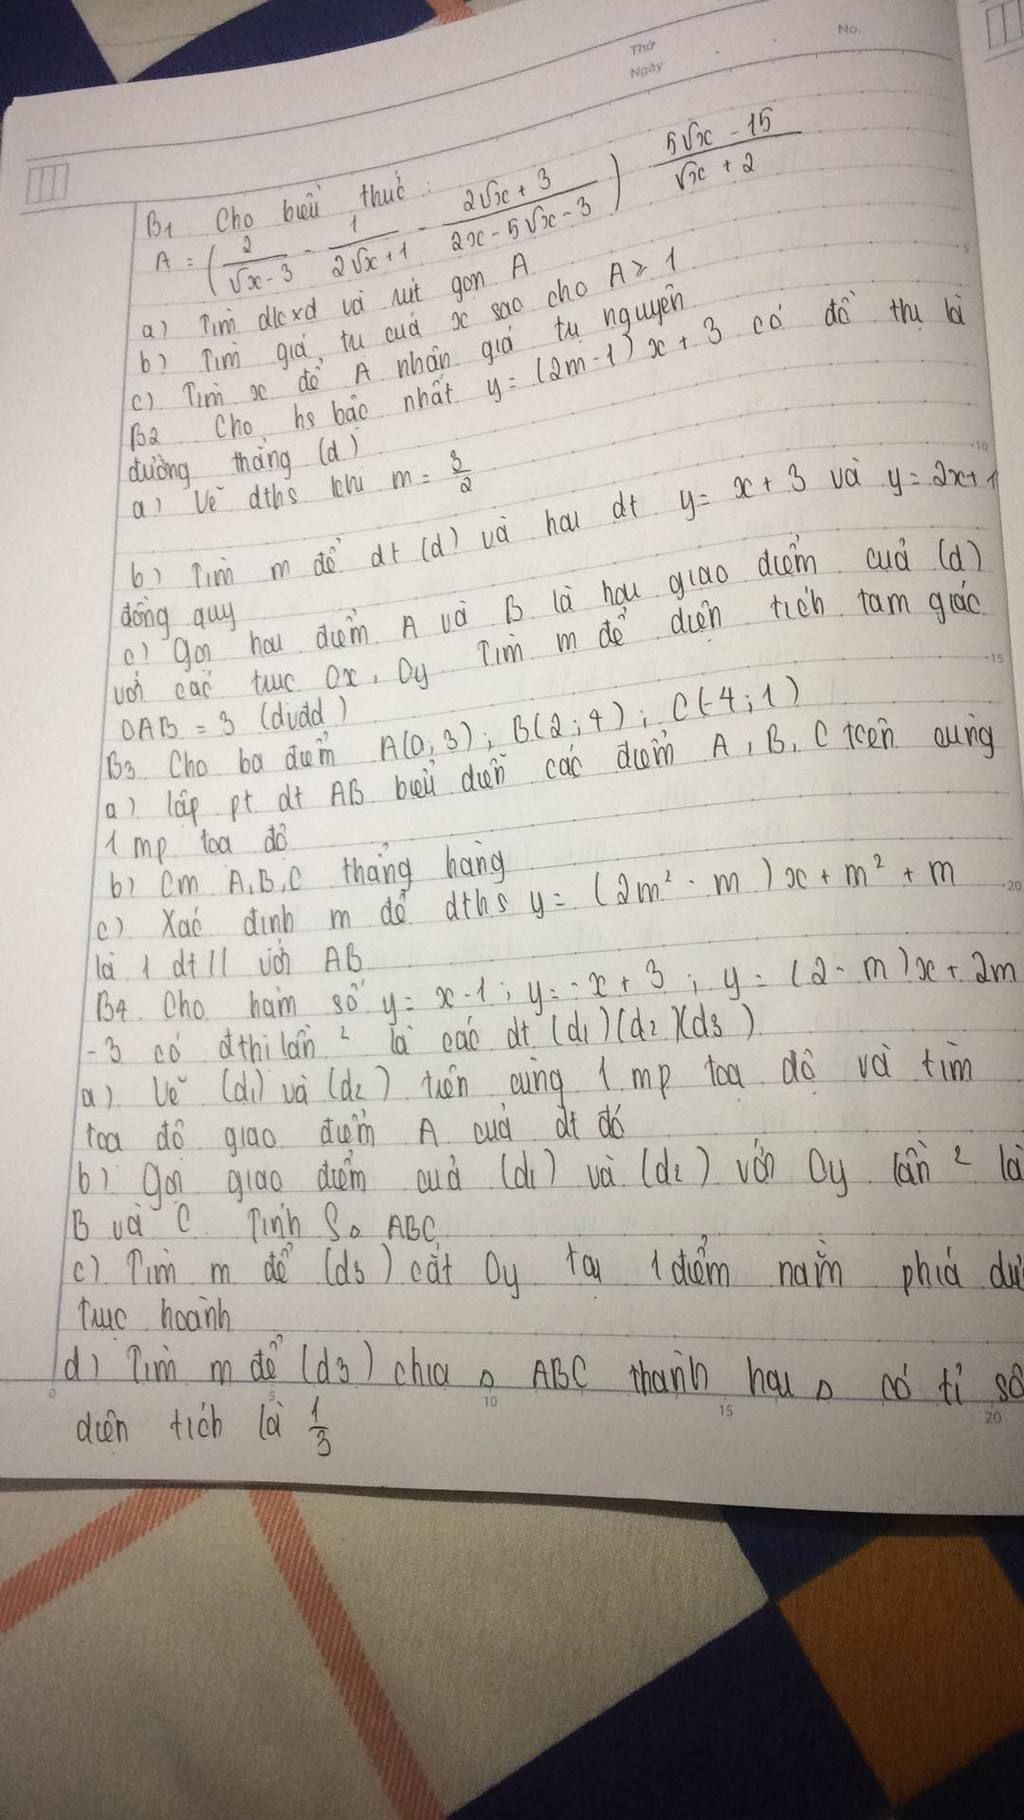 Thứ
Ngày
No.
B1 Cho biểu thức:
A = (2/(√x - 3) - 1/(2√x + 1) - (2√x + 3)/(2x - 5√x - 3)) (5√x - 15)/(√x + 2)
a) Tìm đkxđ và rút gọn A
b) Tìm giá trị của x sao cho A ≥ 1
c) Tìm x để A nhận giá trị nguyên
B2 Cho hs bậc nhất y = (2m - 1)x + 3 có đồ thị là
đường thẳng (d)
a) Vẽ đths khi m = 3/2
b) Tìm m để đt (d) và hai đt y = x + 3 và y = 2x + 1
đồng quy
c) Gọi hai điểm A và B là hai giao điểm của (d)
với các trục Ox, Oy Tìm m để diện tích tam giác
OAB = 3 (đvdd)
B3 Cho ba điểm A(0; 3); B(2; 4); C(-4; 1)
a) lập pt đt AB biểu diễn các điểm A, B, C trên cùng
1 mp tọa độ
b) Cm A, B, C thẳng hàng
c) Xác định m để đths y = (2m² - m)x + m² + m
là 1 đt // với AB
B4. Cho hàm số y = x - 1; y = -x + 3; y = (2 - m)x + 2m
- 3 có đthị lần ² là các đt (d1)(d2)(d3)
a) Vẽ (d1) và (d2) trên cùng 1 mp tọa độ và tìm
tọa độ giao điểm A của đt đó
b) Gọi giao điểm của (d1) và (d2) với Oy lần ² là
B và C Tính SΔ ABC
c) Tìm m để (d3) cắt Oy tại 1 điểm nằm phía
trục hoành
d) Tìm m để (d3) chia Δ ABC thành hai Δ có tỉ số
diện tích là 1/3
5
10
15
20
0
5
10
15
20